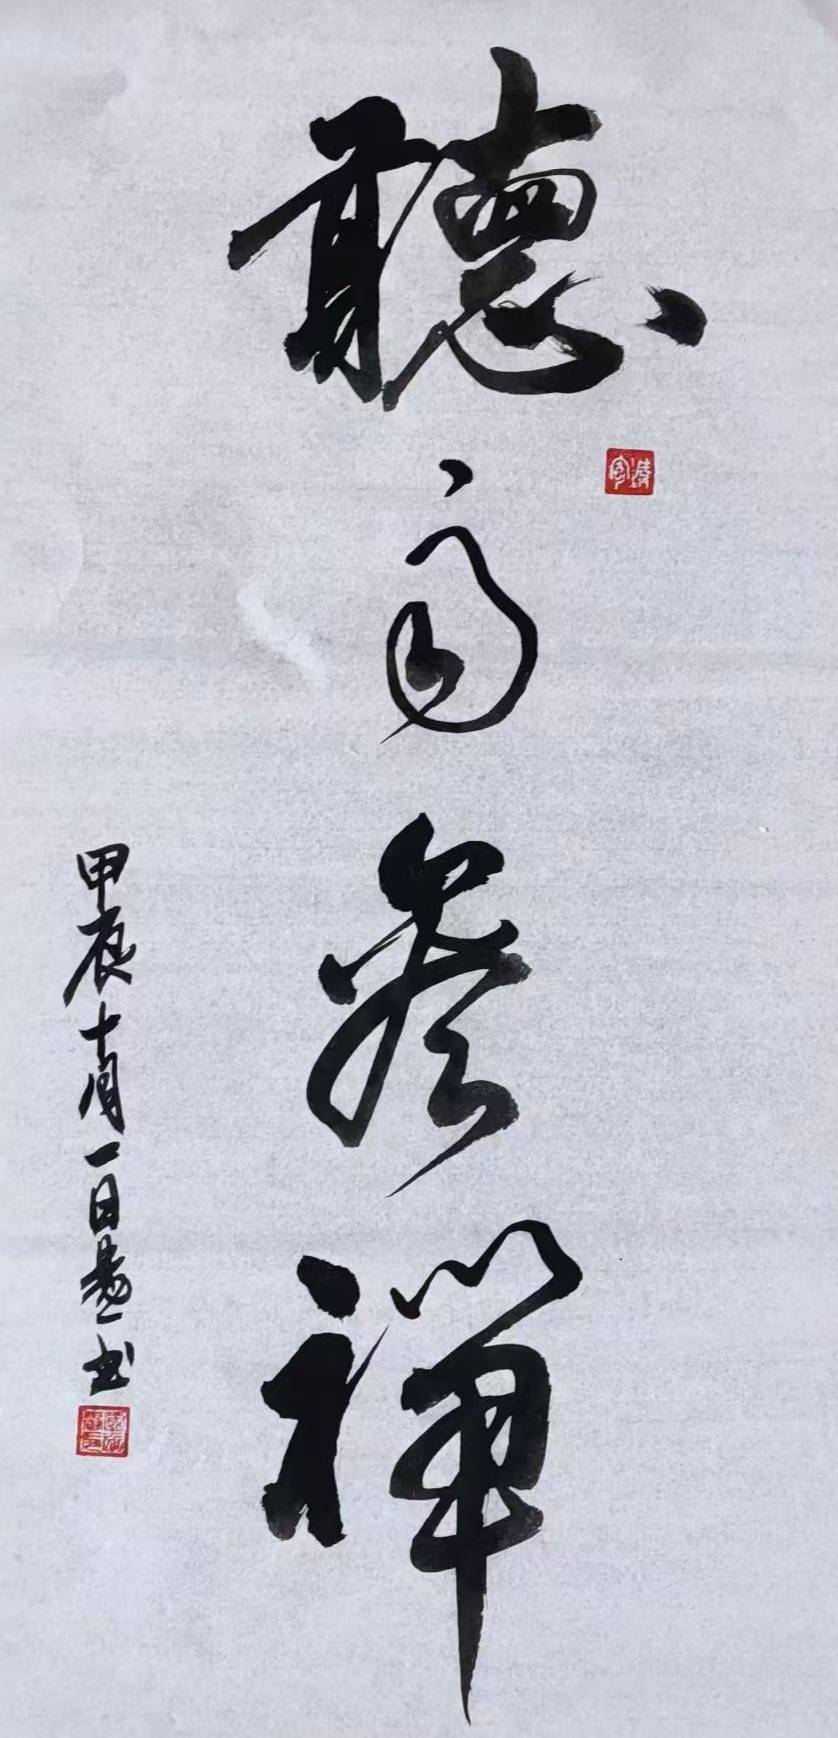 聽雨參禪
甲辰十月一日书